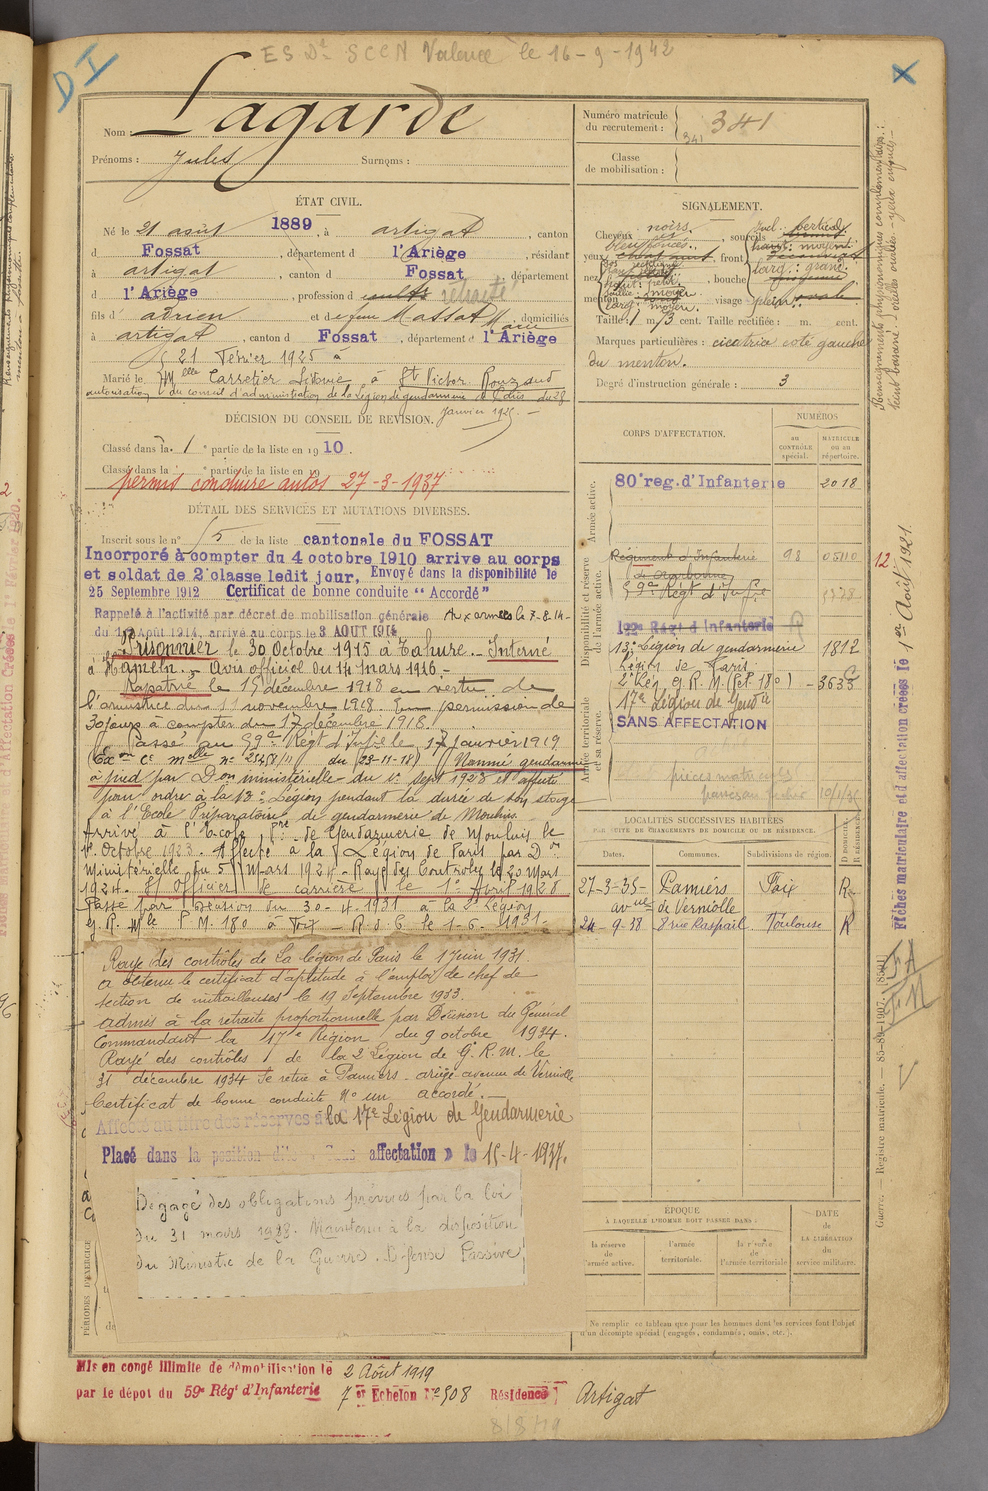 ES Dt SCCN Valence le 16-9-1942
DI
X
Nom : Lagarde
Prénoms : Jules Surnoms :
Numéro matricule du recrutement : 341
341
Classe de mobilisation :
ÉTAT CIVIL.
Né le 21 août 1889, à artigat, canton
d Fossat, département d l'Ariège, résidant
à artigat, canton d Fossat, département
d l'Ariège, profession d cult retraité
fils d' adrien et d eugenie Massat Marie, domiciliés
à artigat, canton d Fossat, département d l'Ariège
21 Février 1925 à
Marié le Melle Carretier à St Victor Rouzaud
autorisation du conseil d'administration de la Légion de gendarmerie de Paris du 28
Janvier 1925. —
DÉCISION DU CONSEIL DE REVISION.
Classé dans la 1e partie de la liste en 1910.
Classé dans la e partie de la liste en 19
permis conduire autos 27-3-1937
DÉTAIL DES SERVICES ET MUTATIONS DIVERSES.
Inscrit sous le n° 15 de la liste cantonale du FOSSAT
Incorporé à compter du 4 octobre 1910 arrive au corps
et soldat de 2e classe ledit jour. Envoyé dans la disponibilité le
25 Septembre 1912 Certificat de bonne conduite "Accordé"
Rappelé à l'activité par décret de mobilisation générale Aux armées le 7-8-14-
du 1er Août 1914, arrivé au corps le 3 AOUT 1914
Prisonnier le 30 Octobre 1915 à Tahure. - Interné
à Hameln. - Avis officiel du 14 mars 1916 -
Rapatrié le 15 décembre 1918 en vertu de
l'armistice du 11 novembre 1918. En permission de
30 jours à compter du 17 décembre 1918.
Passé au 59e Régt d'Infie le 17 Janvier 1919
(Exon Ce Melle n° 25458/11 du (23-11-18) Nommé gendarme
à pied par Don ministérielle du 1er Sept 1923 et affecté
pour ordre à la 13e Légion pendant la durée de son stage
à l'Ecole Préparatoire de gendarmerie de Moulins.
Arrivé à l'Ecole Pre de Gendarmerie de Moulins le
1er Octobre 1923. Affecté à la Légion de Paris par Don
Ministérielle du 5 Mars 1924 - Rayé des Contrôles le 20 Mars
1924. S/ Officier de carrière le 1er Avril 1928
Passé par Décision du 30-4-1931 à la 2e Légion
G.R.M. le P.M. 180 à Foix - R.d.C. le 1-6-1931 -
Rayé des contrôles de la légion de Paris le 1 juin 1931.
a obtenu le certificat d'aptitude à l'emploi de chef de
section de mitrailleuses le 19 Septembre 1933.
admis à la retraite proportionnelle par Décision du Général
Commandant la 17e Région du 9 octobre 1934.
Rayé des contrôles de la 2e Légion de G.R.M. le
31 décembre 1934 se retire à Pamiers - ariège avenue de Verniolle
Certificat de bonne conduite N° un accordé. —
Affecté au titre des réserves à la 17e Légion de Gendarmerie
Placé dans la position dite « Sans affectation » le 15-4-1937.
Dégagé des obligations prévues par la loi
du 31 mars 1928. Maintenu à la disposition
du Ministre de la Guerre. Défense Passive
PÉRIODES D'EXERCICE
Mis en congé illimité de démobilisation le 2 Août 1919
par le dépot du 59e Régt d'Infanterie 7er Echelon N° 508 Résidence Artigat
8/8/19
SIGNALEMENT.
Cheveux noirs.
yeux bleu foncés.
sourcils
front
nez
bouche
menton
visage plein.
Taille : 1 m 73 cent. Taille rectifiée : m. cent.
Marques particulières : cicatrice coté gauche
du menton.
Degré d'instruction générale : 3
CORPS D'AFFECTATION.
NUMÉROS
au CONTRÔLE spécial.
MATRICULE ou au répertoire.
Armée active.
80e reg. d'Infanterie 2018
Disponibilité et réserve de l'armée active.
Régiment d'Infanterie 98 05110
de Narbonne
59e Régt d'Infie
Régt d'Infanterie
13e Légion de gendarmerie 1812
Légion de Paris
2e Lég. G.R.M. (Pel. 180) - 3635
17e Légion de Gendie
SANS AFFECTATION
Armée territoriale et sa réserve.
pièces matricules
10/1/35
LOCALITÉS SUCCESSIVES HABITÉES
PAR SUITE DE CHANGEMENTS DE DOMICILE OU DE RÉSIDENCE.
Dates. Communes. Subdivisions de région. D DOMICILE R RÉSIDENCE
27-3-35- Pamiers Foix R
avue de Verniolle
24-9-38 8 rue Raspail Toulouse R
ÉPOQUE
À LAQUELLE L'HOMME DOIT PASSER DANS :
la réserve de l'armée active.
l'armée territoriale.
la réserve de l'armée territoriale
DATE de LA LIBÉRATION du service militaire.
Ne remplir ce tableau que pour les hommes dont les services font l'objet
d'un décompte spécial (engagés, condamnés, omis, etc.).
Renseignements physionomiques complémentaires :
teint basané
12.
Fiches matriculaire et d'affectation créées le 1er Août 1921.
Guerre. — Registre matricule. — 85-89-1907. [8504]